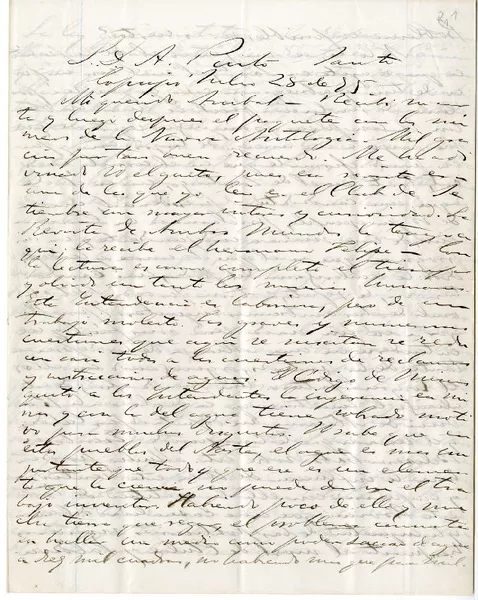 S. D. A. Pinto Santo
Copiapó Julio 23 de 75
Mi querido Anibal = Recibi
te y luego despues el paquete con los nú
meros de la Nueva Antologia. Mil gra
cias por tan buen recuerdo. Me ha adi
vinado U el gusto, pues, esa revista es
una de las que yo leia en el Club de Se
tiembre con mayor interes y curiosidad. La
Revista de Ambos Mundos la tengo
aqui, la recibe el hermano Felipe = Con
la lectura es como completo el tiempo
y olvido un tanto las
Esta Intendencia es laboriosa, pero de un
trabajo molesto. Las graves y numerosas
cuestiones que aqui se suscitan se redu
cen casi todas a cuestiones de reclamos
y de aguas. El Codigo de Minas
quitó a los Intendentes la injerencia en mi
nas y con la del agua tienen sobrado moti
vo para muchos disgustos. U sabe que en
estos pueblos del Norte, el agua es mas im
portante que todo y que ese es un elemen
to que la ciencia no puede dar ni el tra
bajo inventar. Habiendo poco de ella y mu
cha tierra que regar, el problema consiste
en hallar un medio como poder
a diez mil cuadras, no habiendo mas que para mil.